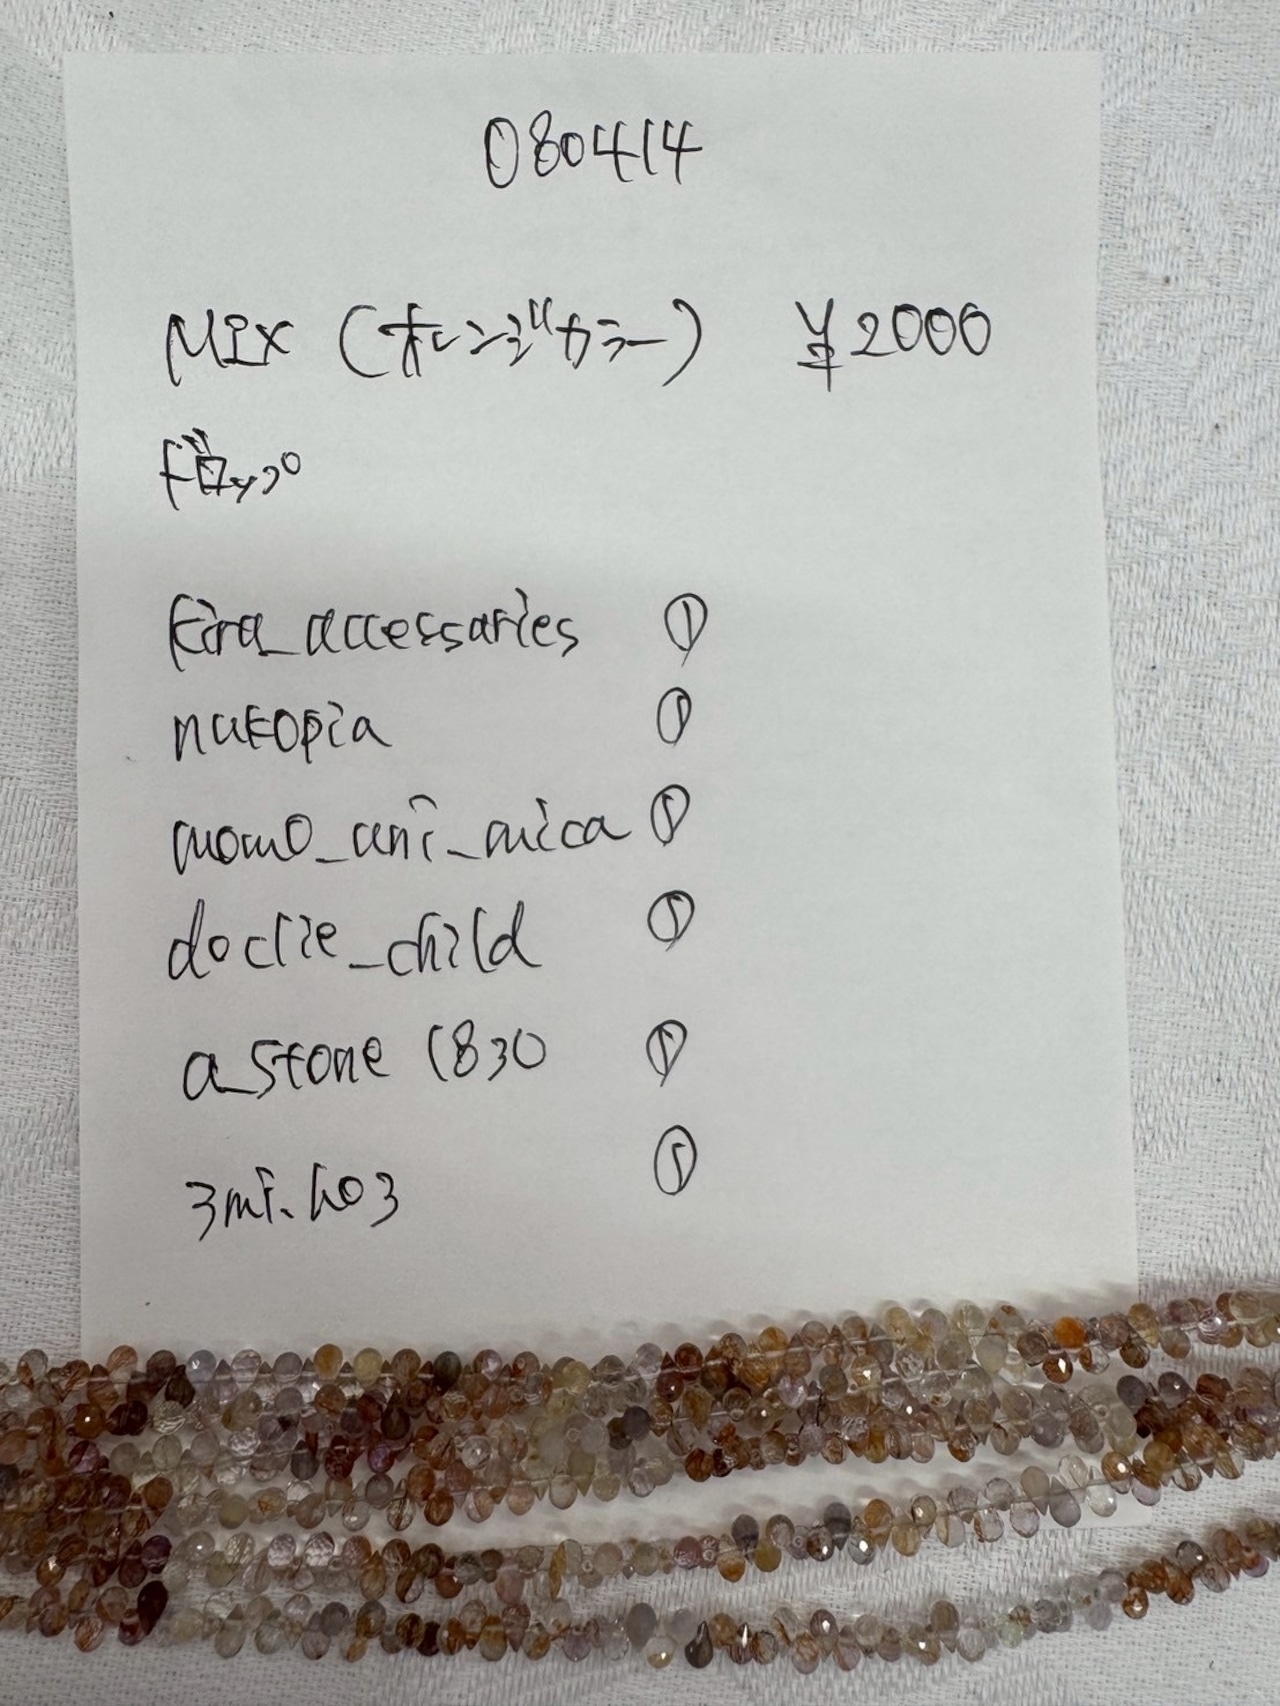 080414
MIX (オレンジカラー) ¥2000
ドロップ
kira_accessaries ①
nutopia ①
momo_uni_mica ①
doclie_child ①
a_stone 1830 ①
3mi.ho3 ①